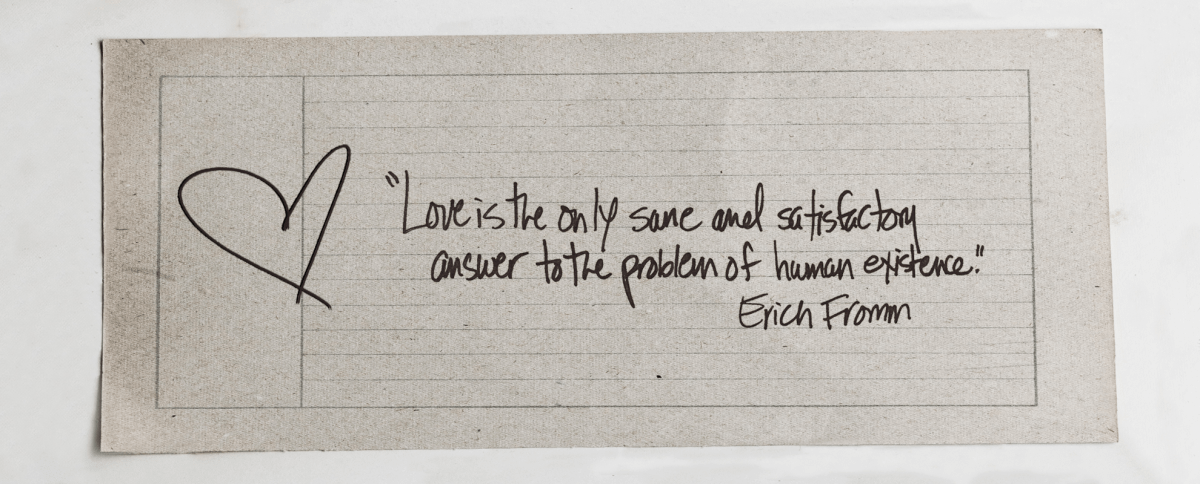 "Love is the only sane and satisfactory
answer to the problem of human existence."
Erich Fromm